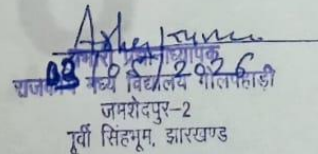 प्रभारी प्रधानाध्यापक
मध्य विद्यालय गोलपहाड़ी
जमशेदपुर-2
पूर्वी सिंहभूम, झारखण्ड